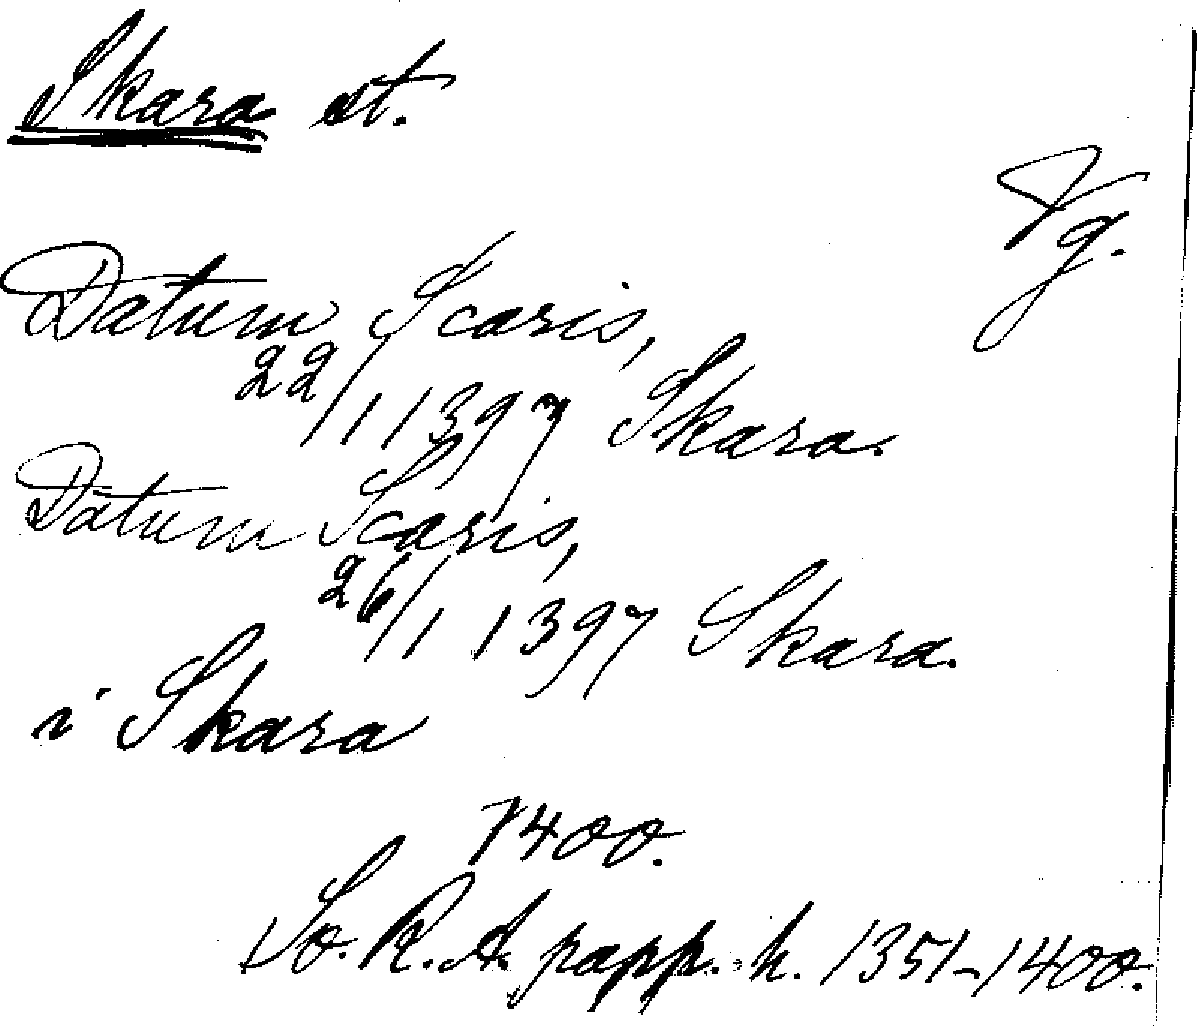 Skara st.
Vg.
Datum Scaris,
22/1 1397 Skara.
Datum Scaris,
26/1 1397 Skara.
i Skara
1400.
Sv. R. A. papp. h. 1351-1400.